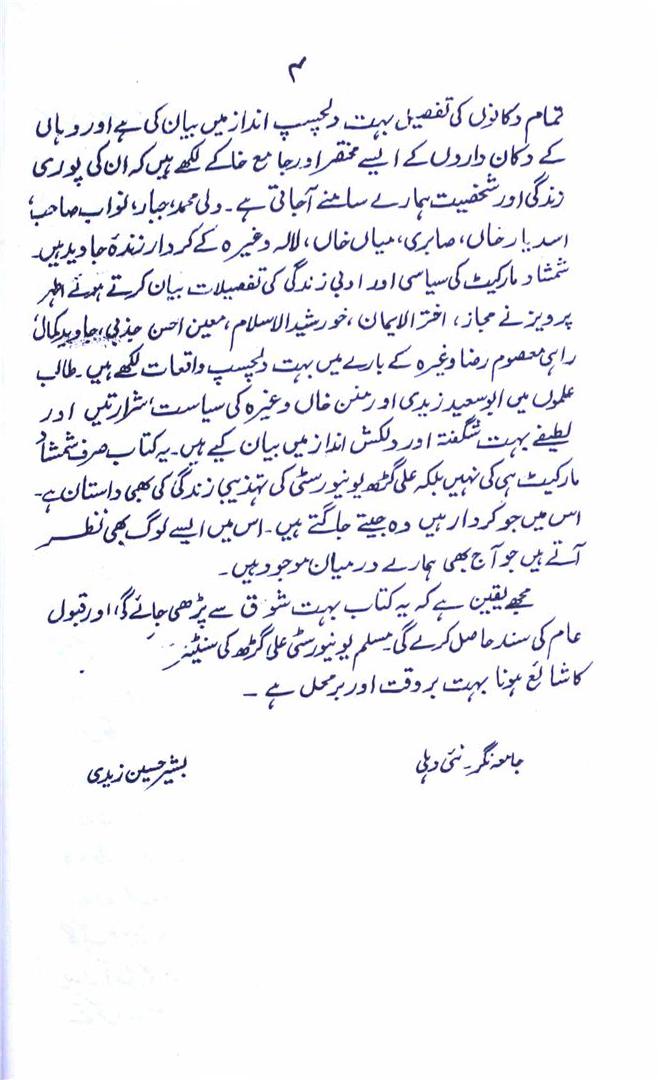 ۴
تمام دکانوں کی تفصیل بہت دلچسپ انداز میں بیان کی ہے اور وہاں
کے دکان داروں کے ایسے مختصر اور جامع خاکے لکھے ہیں کہ ان کی پوری
زندگی اور شخصیت ہمارے سامنے آجاتی ہے۔ ولی محمد، جبار، نواب صاحب،
اسد یار خاں، صابری، میاں خاں، لالہ وغیرہ کے کردار زندۂ جاوید ہیں۔
شمشاد مارکیٹ کی سیاسی اور ادبی زندگی کی تفصیلات بیان کرتے ہوئے اطہر
پرویز نے مجاز، اختر الایمان، خورشید الاسلام، معین احسن جذبی، جاوید کمال،
راہی معصوم رضا وغیرہ کے بارے میں بہت دلچسپ واقعات لکھے ہیں۔ طالب
علموں میں ابوسعید زیدی اور منن خاں وغیرہ کی سیاست، شرارتیں اور
لطیفے بہت شگفتہ اور دلکش انداز میں بیان کیے ہیں۔ یہ کتاب صرف شمشاد
مارکیٹ ہی کی نہیں بلکہ علی گڑھ یونیورسٹی کی تہذیبی زندگی کی بھی داستان ہے۔
اس میں جو کردار ہیں وہ جیتے جاگتے ہیں۔ اس میں ایسے لوگ بھی نظر
آتے ہیں جو آج بھی ہمارے درمیان موجود ہیں۔
مجھے یقین ہے کہ یہ کتاب بہت شوق سے پڑھی جائے گی، اور قبول
عام کی سند حاصل کرے گی۔ مسلم یونیورسٹی علی گڑھ کی
کا شائع ہونا بہت بروقت اور برمحل ہے۔
جامعہ نگر۔ نئی دہلی بشیر حسین زیدی